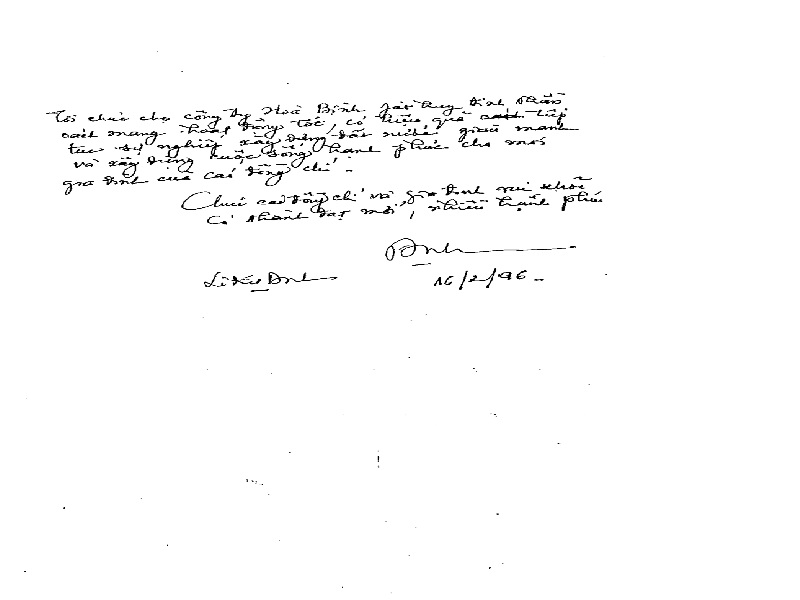 Tôi chúc cho công ty Hoà Bình phát huy tinh thần
cách mạng hoạt động tốt, có hiệu quả tiếp
tục sự nghiệp xây dựng đất nước giàu mạnh
và xây dựng cuộc sống hạnh phúc cho mọi
gia đình của các đồng chí.
Chúc các đồng chí và gia đình vui khoẻ
có thành đạt mới, nhiều hạnh phúc
Anh
16/2/96